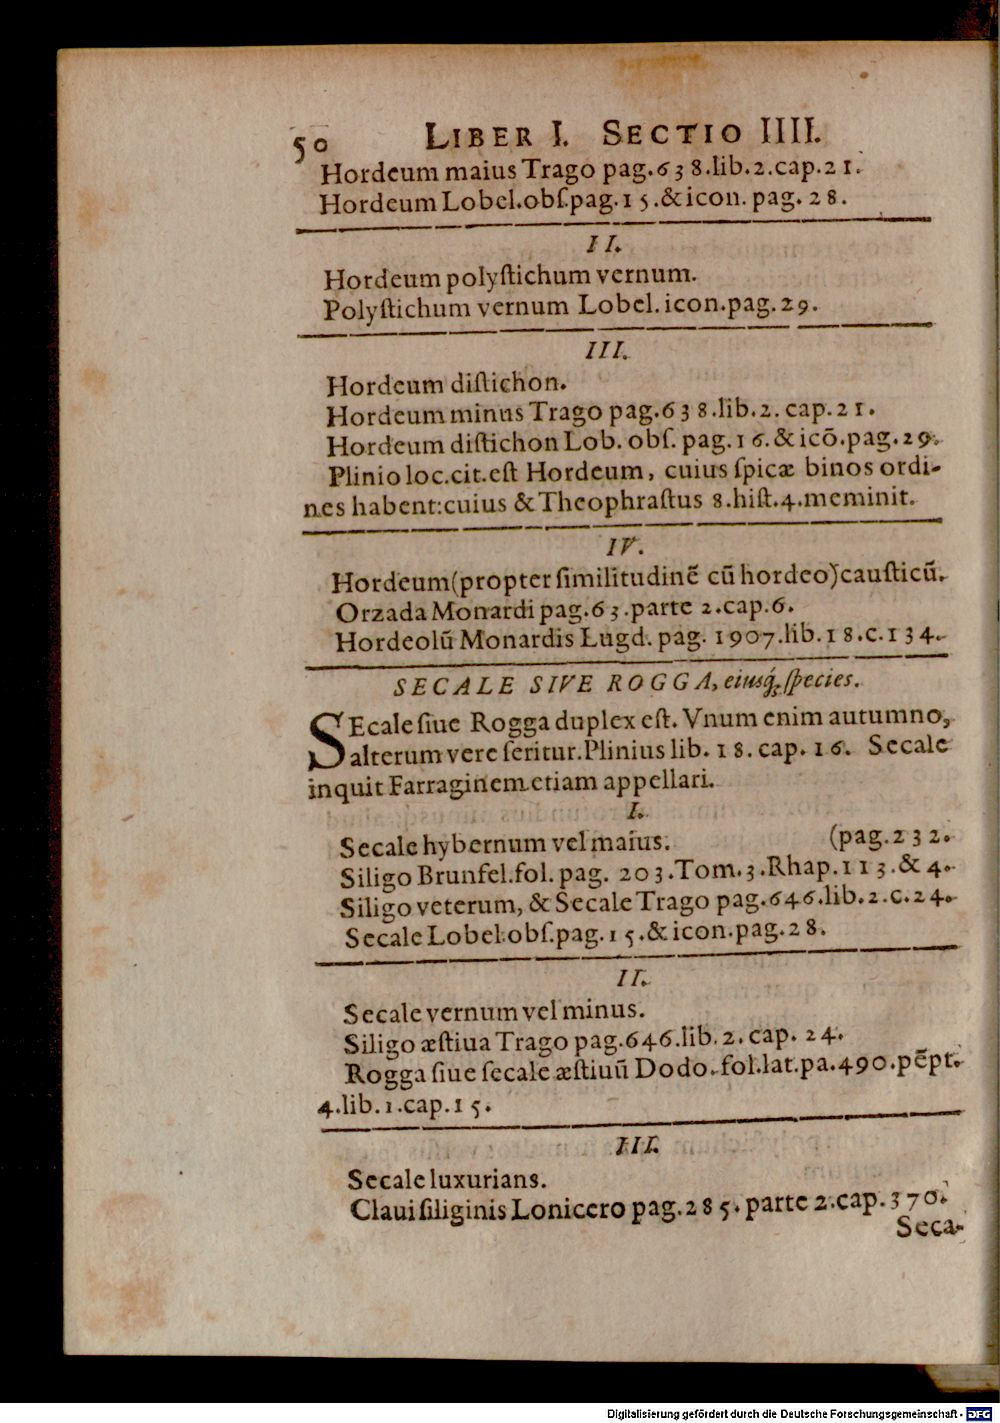 50 LIBER I. SECTIO IIII.
Hordeum maius Trago pag.638.lib.2.cap.21.
Hordeum Lobel.obſ.pag.15.& icon. pag. 28.
II.
Hordeum polyſtichum vernum.
Polyſtichum vernum Lobel. icon.pag.29.
III.
Hordeum diſtichon.
Hordeum minus Trago pag.638.lib.2. cap.21.
Hordeum diſtichon Lob. obſ. pag.16.& icō.pag.29.
Plinio loc.cit.eſt Hordeum, cuius ſpicæ binos ordi-
nes habent:cuius & Theophraſtus 8.hiſt.4.meminit.
IV.
Hordeum(propter ſimilitudinẽ cũ hordeo)cauſticũ.
Orzada Monardi pag.63.parte 2.cap.6.
Hordeolũ Monardis Lugd. pag. 1907.lib.18.c.134.
SECALE SIVE ROGGA, eiusq́; ſpecies.
SEcale ſiue Rogga duplex eſt. Vnum enim autumno,
alterum vere ſeritur.Plinius lib. 18. cap. 16. Secale
inquit Farraginem etiam appellari.
I.
Secale hybernum vel maius. (pag.232.
Siligo Brunfel.fol. pag. 203.Tom.3.Rhap.113.& 4.
Siligo veterum, & Secale Trago pag.646.lib.2.c.24.
Secale Lobel.obſ.pag.15.& icon.pag.28.
II.
Secale vernum vel minus.
Siligo æſtiua Trago pag.646.lib.2. cap. 24.
Rogga ſiue ſecale æſtiuũ Dodo.fol.lat.pa.490.pẽpt.
4.lib.1.cap.15.
III.
Secale luxurians.
Claui ſiliginis Lonicero pag.285.parte 2.cap.370.
Seca-
Digitalisierung gefördert durch die Deutsche Forschungsgemeinschaft - DFG